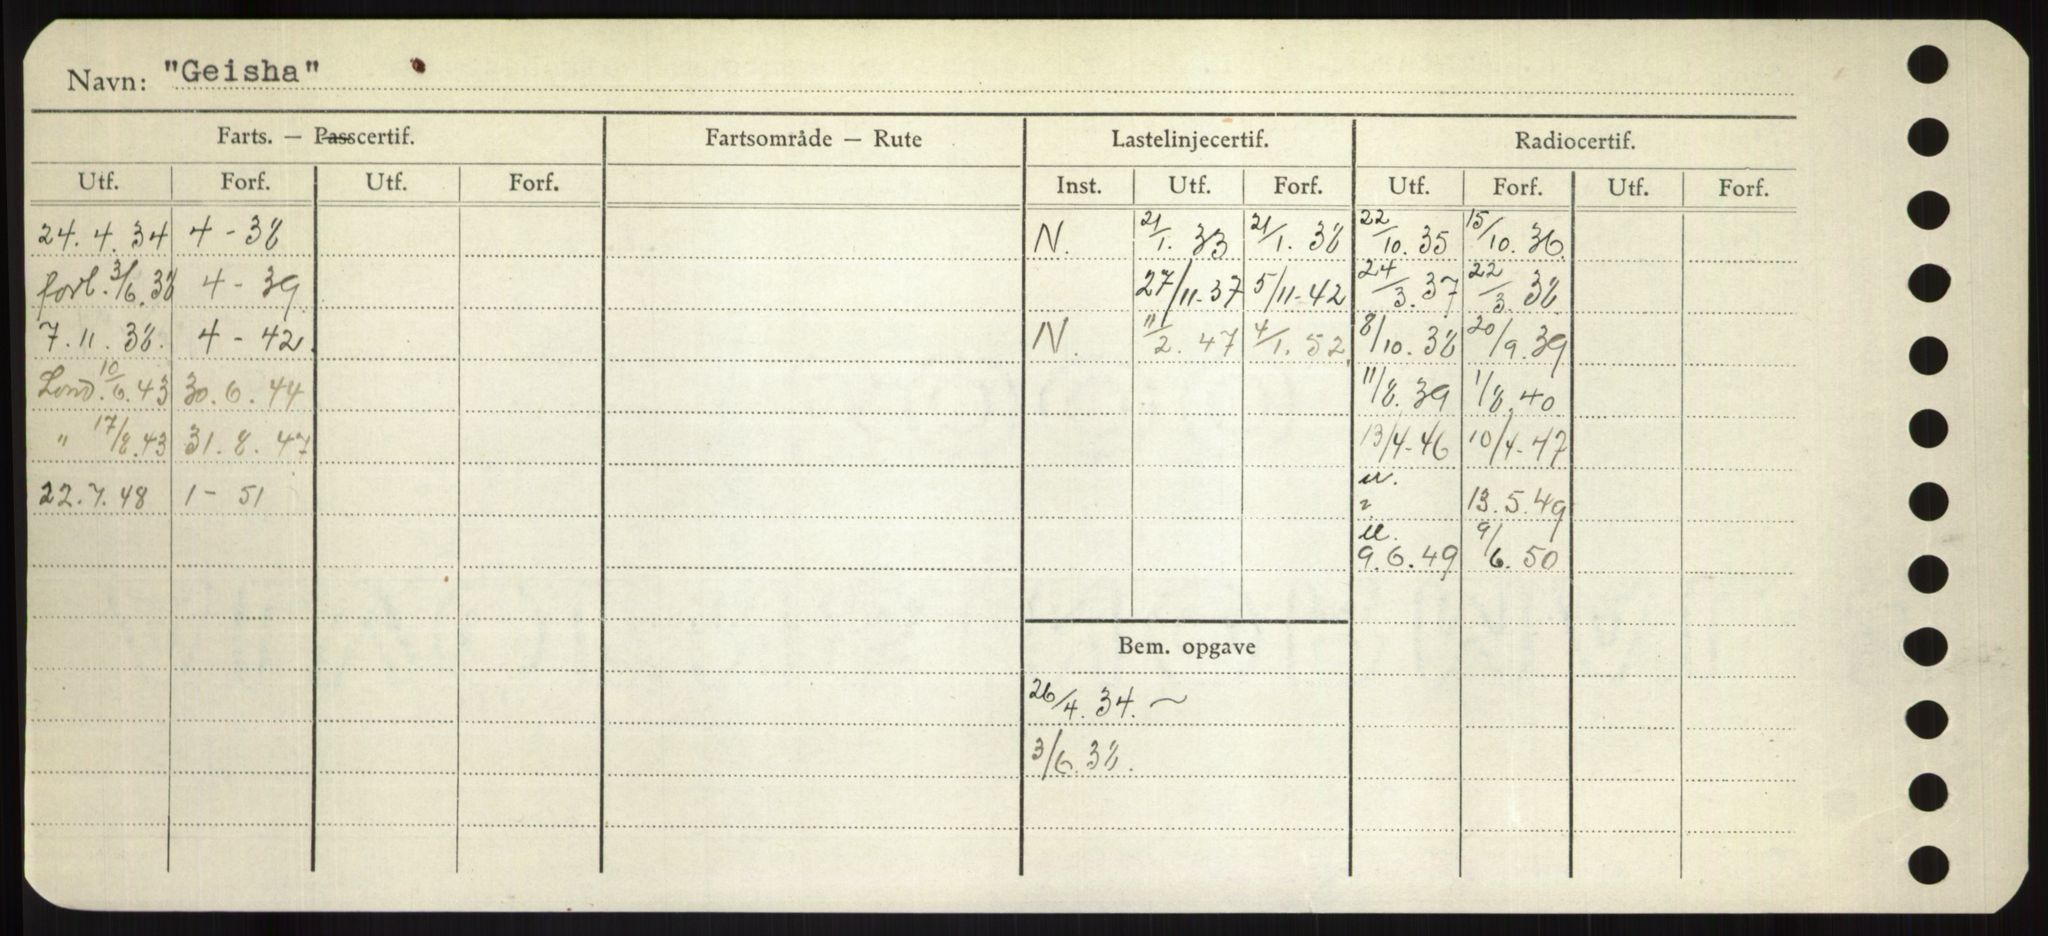 Navn: "Geisha"
Farts. — Passcertif. Fartsområde — Rute Lastelinjecertif. Radiocertif.
Utf. Forf. Utf. Forf. Inst. Utf. Forf. Utf. Forf. Utf. Forf.
24.4.34 4 - 38 N. 21/1. 33 21/1. 38 22/10. 35 15/10. 36
forl. 3/6. 38 4 - 39 27/11-37 5/11-42 24/3. 37 22/3. 38
7.11.38. 4 - 42. N. 11/2. 47 4/1. 52. 8/10. 38 20/9. 39
Lond. 10/6. 43 30.6.44 11/8. 39 1/8. 40
" 17/8. 43 31.8.47 13/4-46 10/4-47
22.7.48 1 - 51 u. 13.5.49
u. 9.6.49 9/6. 50
Bem. opgave
26/4. 34. ~
3/6. 38.